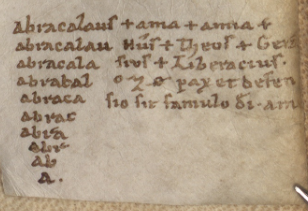 Abracalaus + ama + amna +
abracalau Hus + Theos + Ger
abracala sios + Liberacius.
abrabal o z o pax et defen
abraca sio sit famulo di. am
abrac
abra
abr
Ab
A.